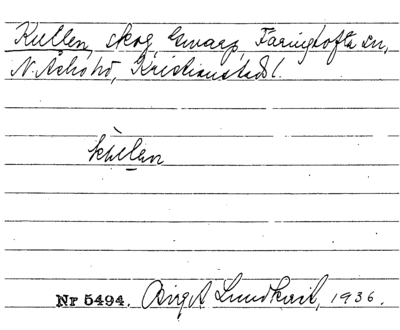 Kullen, skog, Ewarp, Färingtofta sn,
N. Åsbo hd, Kristianstads l.
kùlen
Nr 5494. Birgit Lundkvist, 1936.